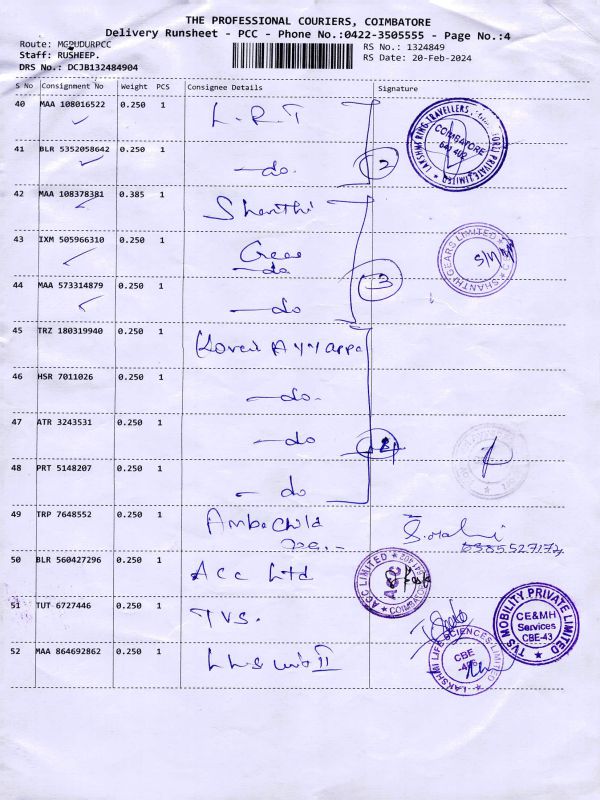 THE PROFESSIONAL COURIERS, COIMBATORE
Delivery Runsheet - PCC - Phone No.:0422-3505555 - Page No.:4
Route: MGPUDURPCC
RS No.: 1324849
Staff: RUSHEEP.
RS Date: 20-Feb-2024
DRS No.: DCJB132484904
S No Consignment No Weight PCS Consignee Details Signature
40 MAA 108016522 0.250 1 L.R.T
COIMBATORE
641 402
41 BLR 5352058642 0.250 1 -do. 2
42 MAA 108378381 0.385 1 Shanthi
43 IXM 505966310 0.250 1 Gears
-do
SHANTHI GEARS LIMITED
44 MAA 573314879 0.250 1 -do 3
45 TRZ 180319940 0.250 1 Kovai Ayyappa
46 HSR 7011026 0.250 1 -do.
47 ATR 3243531 0.250 1 -do 4
48 PRT 5148207 0.250 1 -do
49 TRP 7648552 0.250 1 Amba Child
50 BLR 560427296 0.250 1 Acc Ltd
ACC LIMITED
ACC
COIMBATORE
51 TUT 6727446 0.250 1 TVS.
TVS MOBILITY PRIVATE LIMITED
CE&MH
Services
CBE-43
52 MAA 864692862 0.250 1 LLS unit II
LAKSHMI LIFE SCIENCES LIMITED
CBE